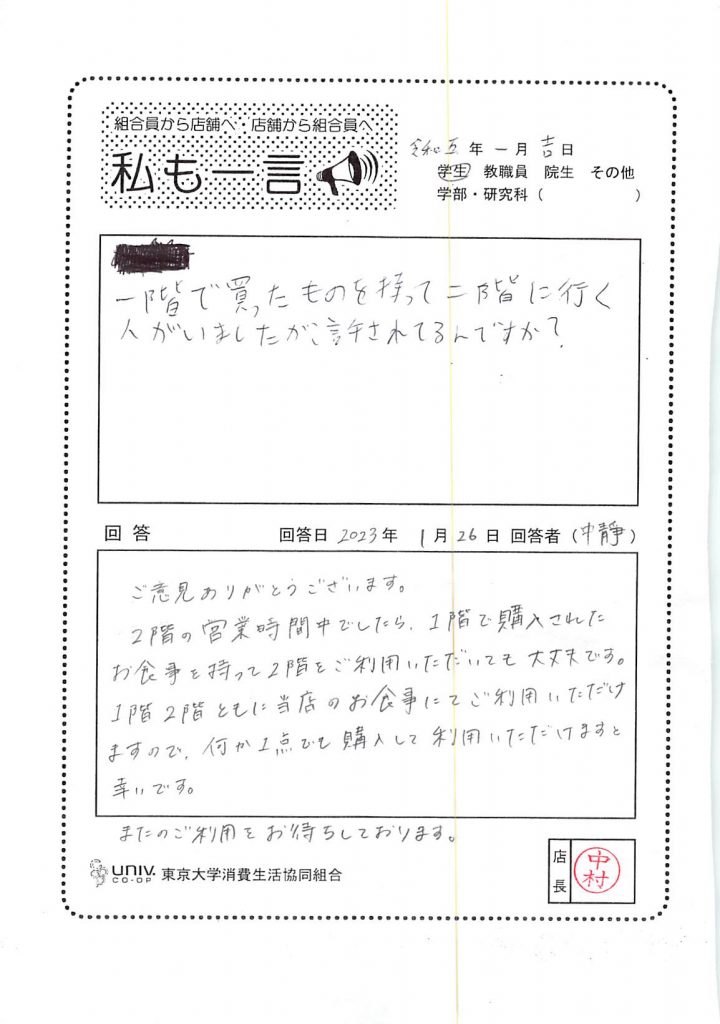 組合員から店舗へ・店舗から組合員へ
私も一言
令和五年一月吉日
学生 教職員 院生 その他
学部・研究科（ ）
一階で買ったものを持って二階に行く
人がいましたが、許されてるんですか？
回答 回答日 2023年 1月26日 回答者（中静）
ご意見ありがとうございます。
2階の営業時間中でしたら、1階で購入された
お食事を持って2階をご利用いただいても大丈夫です。
1階2階ともに当店のお食事にてご利用いただけ
ますので、何か1点でも購入して利用いただけますと
幸いです。
またのご利用をお待ちしております。
UNIV. CO-OP 東京大学消費生活協同組合
店長 中村